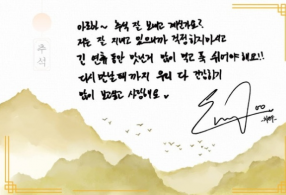 추석
아로하~ 추석 잘 보내고 계신가요?
저는 잘 지내고 있으니까 걱정하지마시고
긴 연휴 동안 맛난거 많이 먹고 푹 쉬어야해요!!
다시 만날 때 까지 우리 다 건강하기
많이 보고싶고 사랑해요